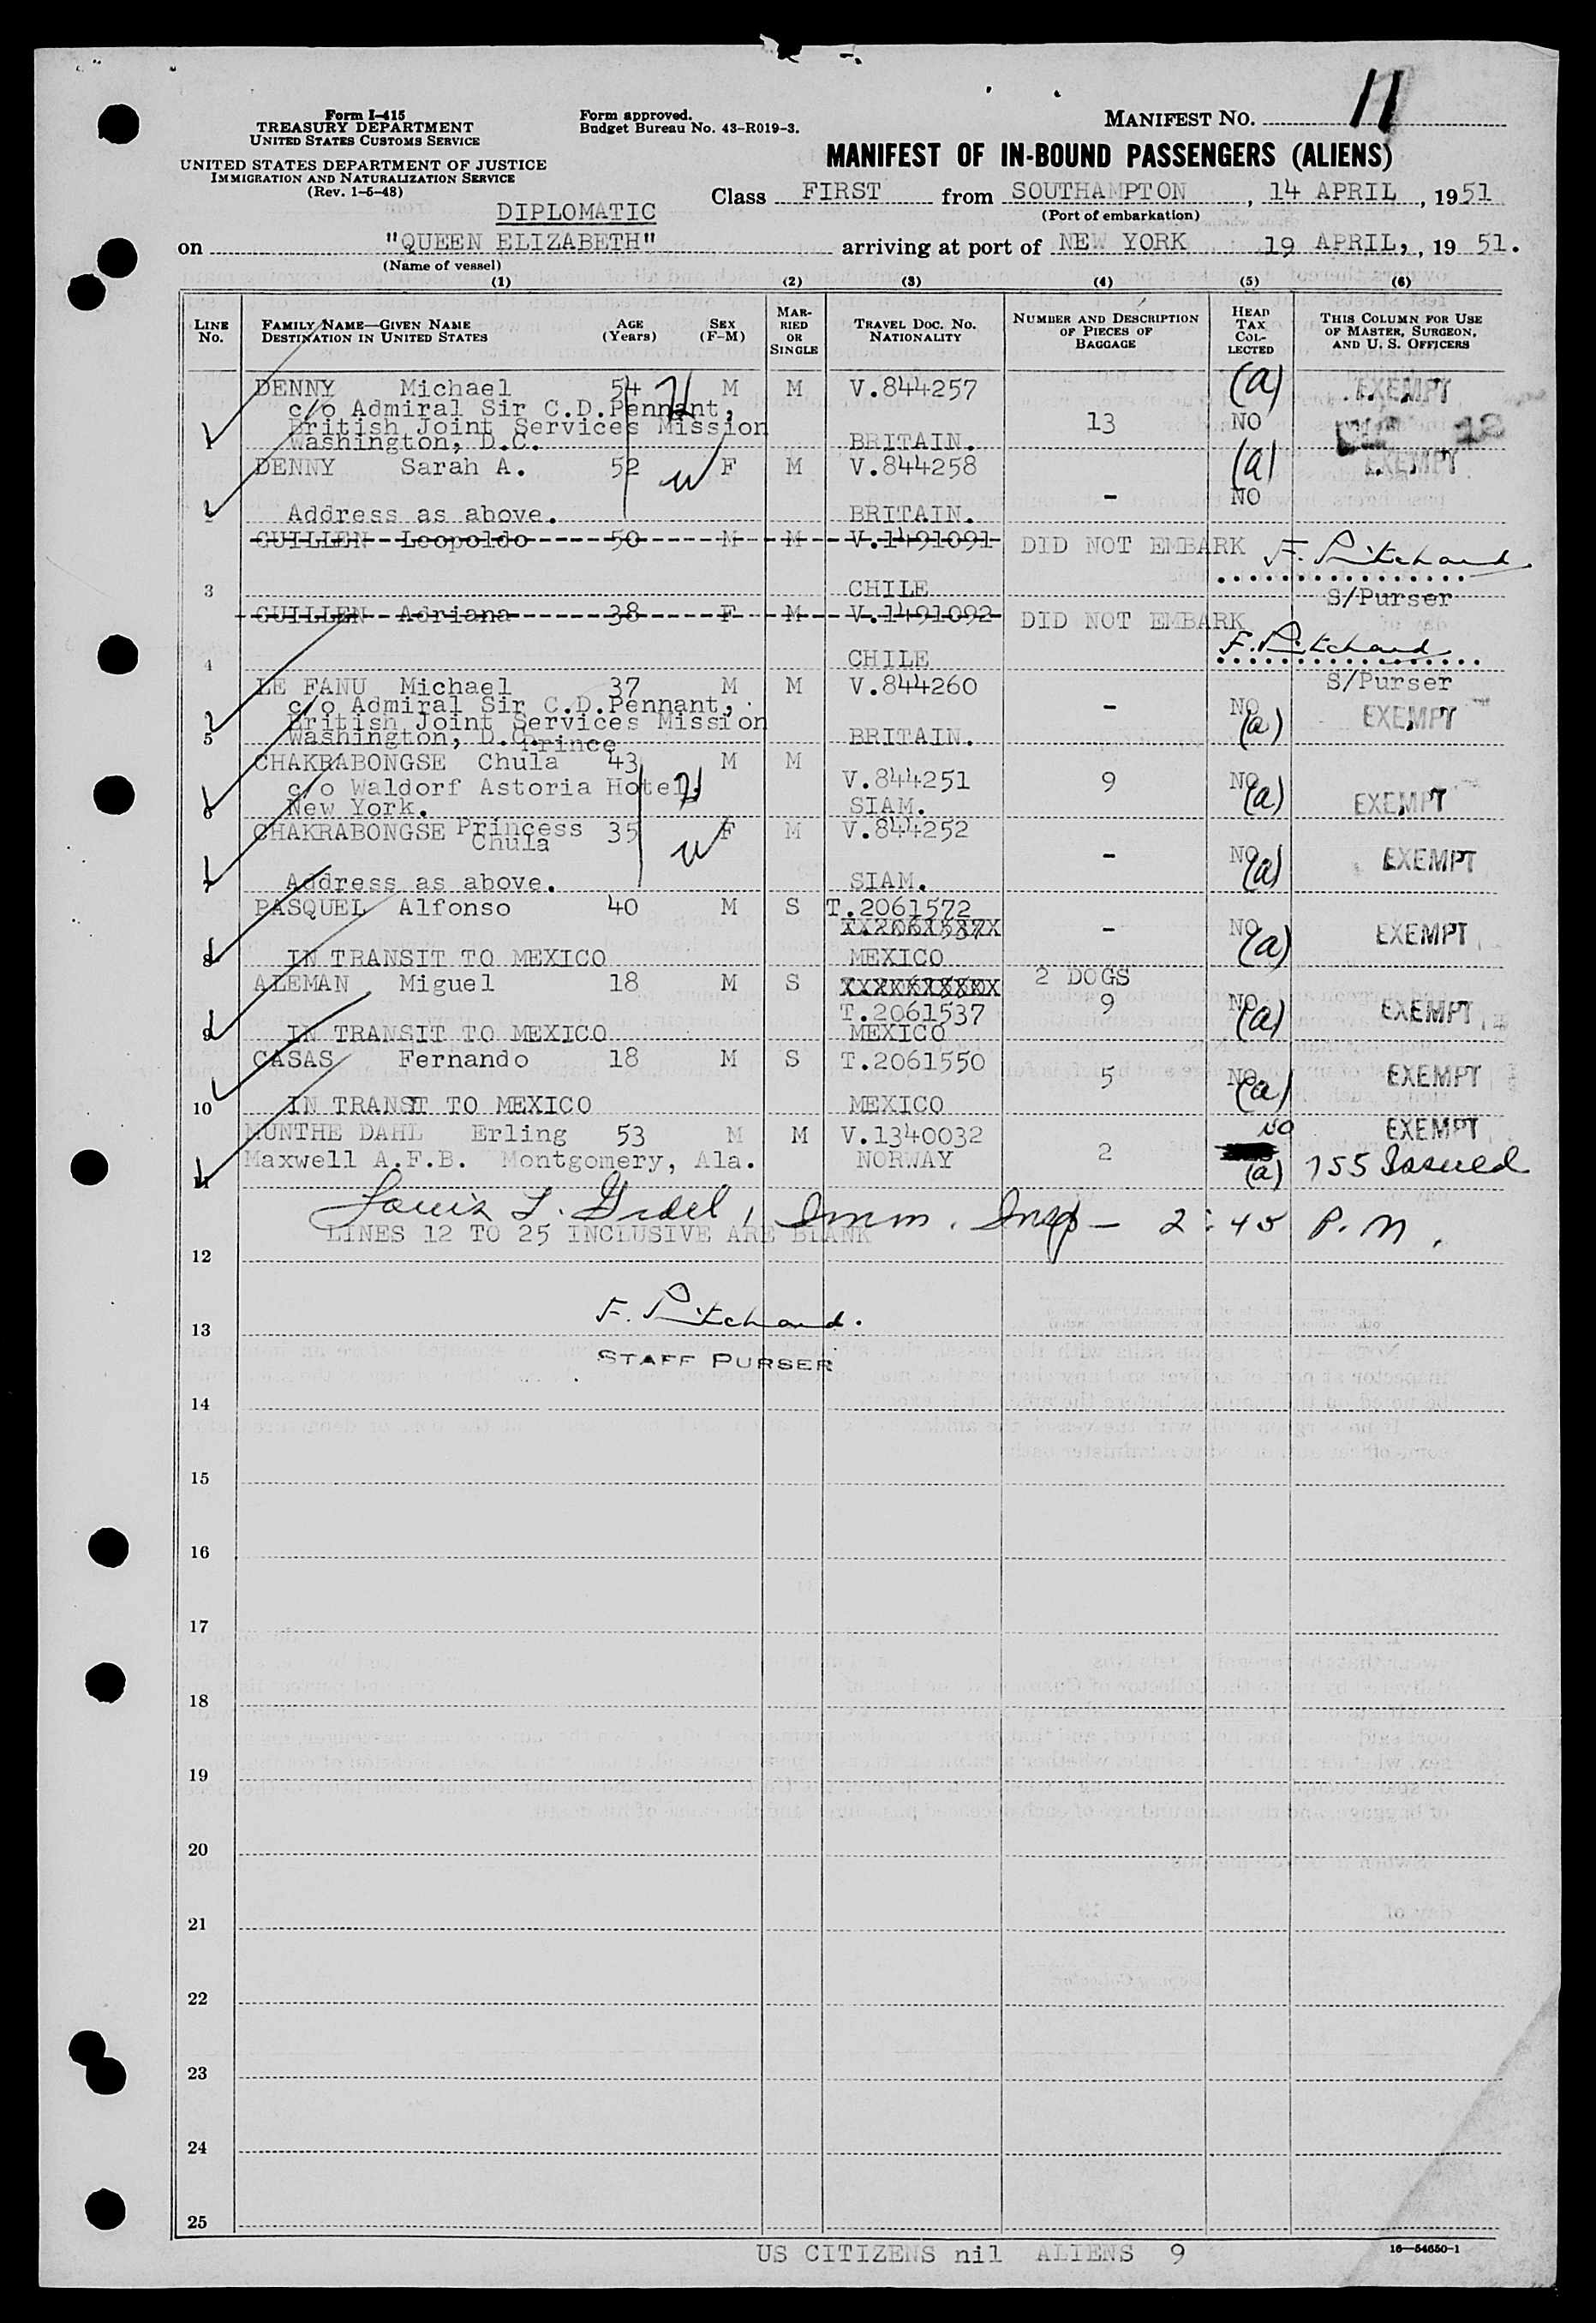 11
Form I-415
TREASURY DEPARTMENT
UNITED STATES CUSTOMS SERVICE
UNITED STATES DEPARTMENT OF JUSTICE
IMMIGRATION AND NATURALIZATION SERVICE
(Rev. 1-5-48)
Form approved.
Budget Bureau No. 43-R019-3.
MANIFEST NO.
MANIFEST OF IN-BOUND PASSENGERS (ALIENS)
Class FIRST from SOUTHAMPTON, 14 APRIL, 1951
(Port of embarkation)
DIPLOMATIC
on "QUEEN ELIZABETH" arriving at port of NEW YORK 19 APRIL, 1951.
(Name of vessel)
(1) (2) (3) (4) (5) (6)
LINE No. FAMILY NAME—GIVEN NAME DESTINATION IN UNITED STATES AGE (Years) SEX (F-M) MARRIED OR SINGLE TRAVEL DOC. NO. NATIONALITY NUMBER AND DESCRIPTION OF PIECES OF BAGGAGE HEAD TAX COLLECTED THIS COLUMN FOR USE OF MASTER, SURGEON, AND U. S. OFFICERS
DENNY Michael 54 M M V.844257 (a) EXEMPT
c/o Admiral Sir C.D.Pennant,
British Joint Services Mission 13 NO
1 Washington, D.C. BRITAIN.
DENNY Sarah A. 52 F M V.844258 (a) EXEMPT
- NO
2 Address as above. BRITAIN.
GUILLEN Leopoldo 50 M M V.1491091 DID NOT EMBARK F. Pritchard
3 CHILE S/Purser
GUILLEN Adriana 38 F M V.1491092 DID NOT EMBARK
F. Pritchard
4 CHILE
S/Purser
LE FANU Michael 37 M M V.844260
c/o Admiral Sir C.D.Pennant, - NO
British Joint Services Mission (a) EXEMPT
5 Washington, D.C. BRITAIN.
Prince
CHAKRABONGSE Chula 43 M M
c/o Waldorf Astoria Hotel, V.844251 9 NO
6 New York. SIAM. (a) EXEMPT
CHAKRABONGSE Princess Chula 35 F M V.844252
- NO (a) EXEMPT
7 Address as above. SIAM.
PASQUEL Alfonso 40 M S T.2061572
T.2061537 - NO (a) EXEMPT
8 IN TRANSIT TO MEXICO MEXICO
ALEMAN Miguel 18 M S 2 DOGS
T.2061537 9 NO (a) EXEMPT
9 IN TRANSIT TO MEXICO MEXICO
CASAS Fernando 18 M S T.2061550
5 NO (a) EXEMPT
10 IN TRANSIT TO MEXICO MEXICO
MUNTHE DAHL Erling 53 M M V.1340032 NO EXEMPT
11 Maxwell A.F.B. Montgomery, Ala. NORWAY 2 (a) 155 Issued
Imm. Insp - 2:45 P.M.
LINES 12 TO 25 INCLUSIVE ARE BLANK
12
F. Pritchard.
13
STAFF PURSER
14
15
16
17
18
19
20
21
22
23
24
25
US CITIZENS nil ALIENS 9
16—54650-1